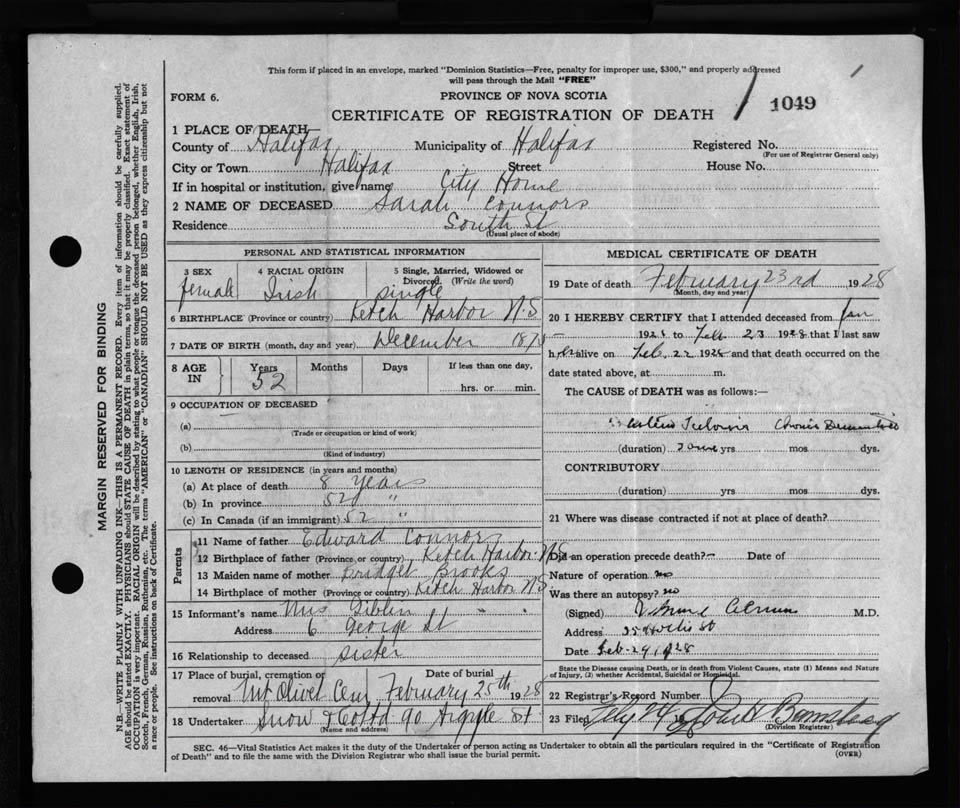 This form if placed in an envelope, marked "Dominion Statistics—Free, penalty for improper use, $300," and properly addressed
will pass through the Mail "FREE"
FORM 6.
PROVINCE OF NOVA SCOTIA
CERTIFICATE OF REGISTRATION OF DEATH
1049
1 PLACE OF DEATH
County of Halifax Municipality of Halifax Registered No.
(For use of Registrar General only)
City or Town Halifax Street House No.
If in hospital or institution, give name City Home
2 NAME OF DECEASED Sarah Connors
Residence South St
(Usual place of abode)
PERSONAL AND STATISTICAL INFORMATION
3 SEX 4 RACIAL ORIGIN 5 Single, Married, Widowed or
Divorced. (Write the word)
female Irish single
6 BIRTHPLACE (Province or country) Ketch Harbor N.S
7 DATE OF BIRTH (month, day and year) December
8 AGE IN Years Months Days If less than one day,
52 hrs. or min.
9 OCCUPATION OF DECEASED
(a)
(Trade or occupation or kind of work)
(b)
(Kind of industry)
10 LENGTH OF RESIDENCE (in years and months)
(a) At place of death 8 years
(b) In province 52 "
(c) In Canada (if an immigrant) 52 "
Parents
11 Name of father Edward Connors
12 Birthplace of father (Province or country) Ketch Harbor N.S
13 Maiden name of mother Bridget Brooks
14 Birthplace of mother (Province or country) Ketch Harbor N S
15 Informant's name Mrs Giblin " "
Address 6 George St
16 Relationship to deceased sister
17 Place of burial, cremation or Date of burial
removal Mt Olivet Cem February 25th 1928
18 Undertaker Snow & Co Ltd 90 Argyle St
(Name and address)
MEDICAL CERTIFICATE OF DEATH
19 Date of death February 23rd 1928
(Month, day and year)
20 I HEREBY CERTIFY that I attended deceased from Jan
192 to Feb 23 1928 that I last saw
her alive on Feb. 22 1928 and that death occurred on the
date stated above, at m.
The CAUSE of DEATH was as follows:—
(duration) yrs mos dys.
CONTRIBUTORY
(duration) yrs mos dys.
21 Where was disease contracted if not at place of death?
Did an operation precede death? - Date of
Nature of operation no
Was there an autopsy? no
(Signed) M.D.
Address St
Date Feb-29/1928
State the Disease causing Death, or in death from Violent Causes, state (1) Means and Nature
of Injury, (2) whether Accidental, Suicidal or Homicidal.
22 Registrar's Record Number
23 Filed 19
(Division Registrar)
SEC. 46—Vital Statistics Act makes it the duty of the Undertaker or person acting as Undertaker to obtain all the particulars required in the "Certificate of Registration
of Death" and to file the same with the Division Registrar who shall issue the burial permit.
(OVER)
MARGIN RESERVED FOR BINDING
N.B.—WRITE PLAINLY WITH UNFADING INK—THIS IS A PERMANENT RECORD. Every item of information should be carefully supplied.
AGE should be stated EXACTLY. PHYSICIANS should STATE CAUSE OF DEATH in plain terms, so that it may be properly classified. Exact statement of
OCCUPATION is very important. RACIAL ORIGIN will be described by stating to what people or tongue the deceased person belonged, whether English, Irish,
Scotch, French, German, Russian, Ruthenian, etc. The terms "AMERICAN" or "CANADIAN" SHOULD NOT BE USED as they express citizenship but not
a race or people. See instructions on back of Certificate.